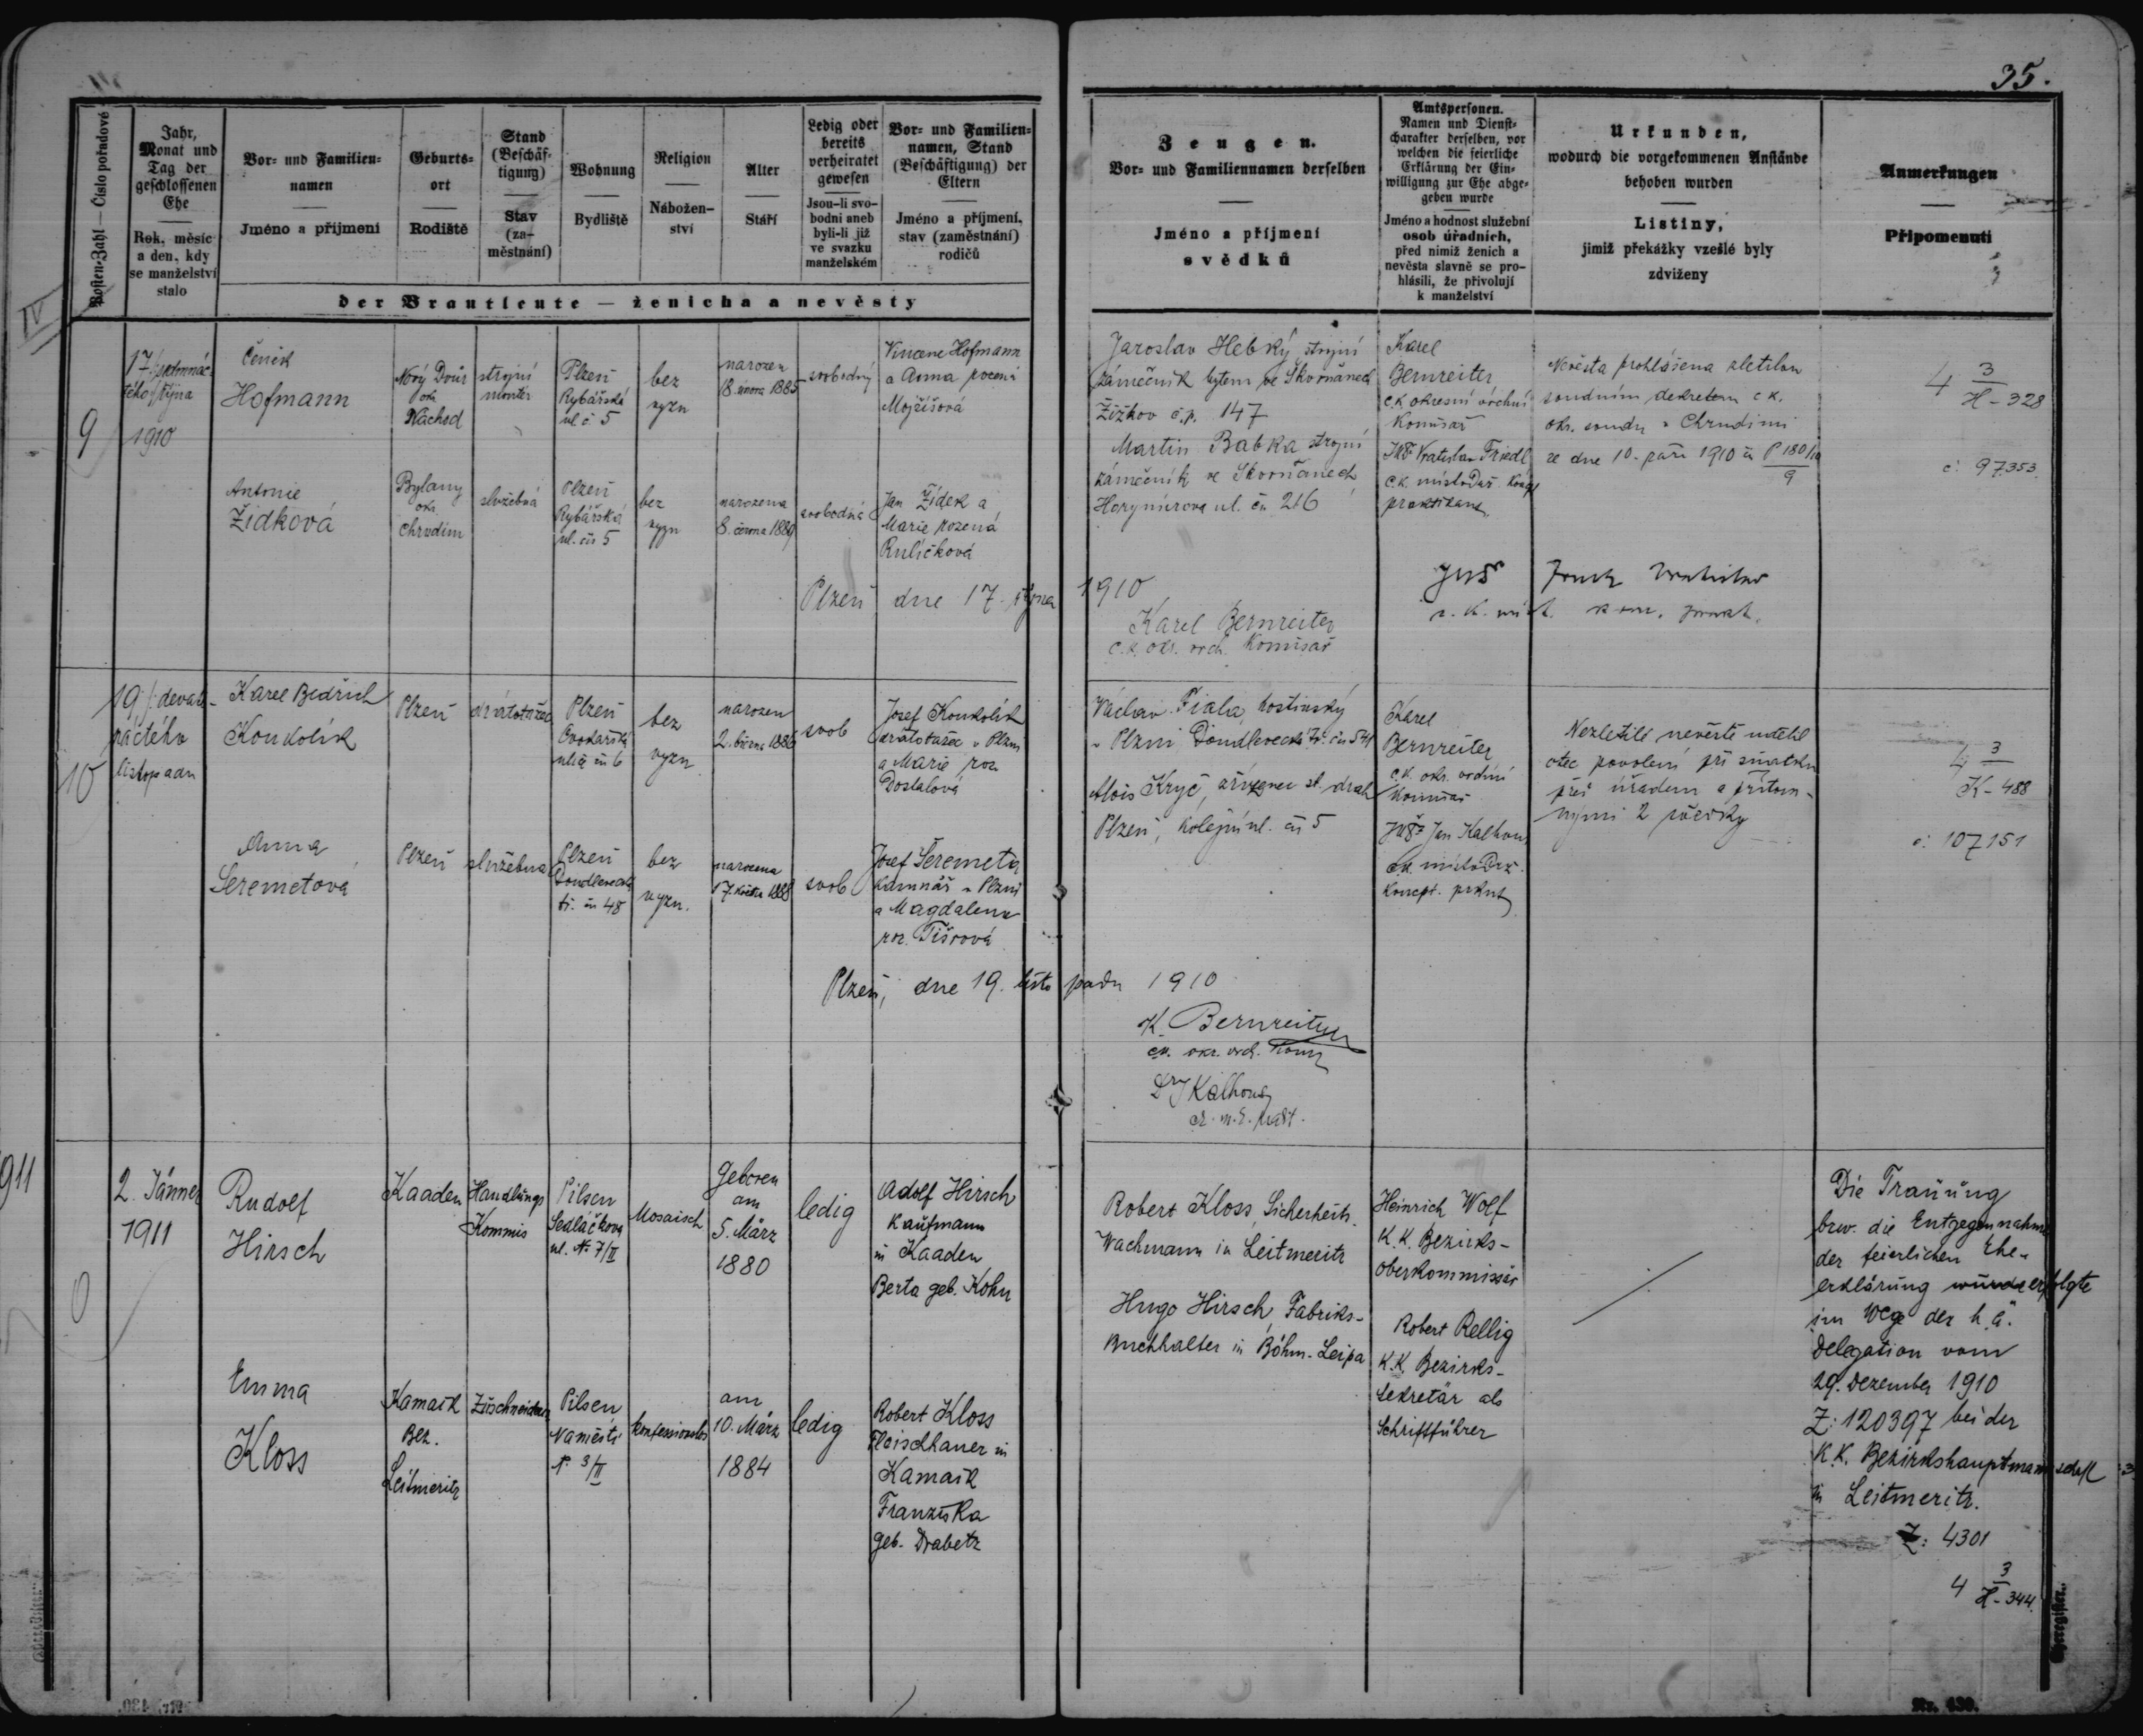 35.
Posten-Zahl — Číslo pořadové
Jahr,
Monat und
Tag der
geschlossenen
Ehe
Rok, měsíc
a den, kdy
se manželství
stalo
Vor- und Familien-
namen
Jméno a příjmení
Geburts-
ort
Rodiště
Stand
(Beschäf-
tigung)
Stav
(za-
městnání)
Wohnung
Bydliště
Religion
Nábožen-
ství
Alter
Stáří
Ledig oder
bereits
verheiratet
gewesen
Jsou-li svo-
bodni aneb
byli-li již
ve svazku
manželském
Vor- und Familien-
namen, Stand
(Beschäftigung) der
Eltern
Jméno a příjmení,
stav (zaměstnání)
rodičů
der Brautleute — ženicha a nevěsty
Zeugen.
Vor- und Familiennamen derselben
Jméno a příjmení
svědků
Amtspersonen.
Namen und Dienst-
charakter derselben, vor
welchen die feierliche
Erklärung der Ein-
willigung zur Ehe abge-
geben wurde
Jméno a hodnost služební
osob úřadních,
před nimiž ženich a
nevěsta slavně se pro-
hlásili, že přivolují
k manželství
Urkunden,
wodurch die vorgekommenen Anstände
behoben wurden
Listiny,
jimiž překážky vzešlé byly
zdviženy
Anmerkungen
Připomenutí
IV
9
17
října
1910
Čeněk
Hofmann
Nový Dvůr
okr.
Náchod
strojní
montér
Plzeň
Rybářská
ul. č. 5
bez
vyzn
narozen
18. února 1885
svobodný
Vincenc Hofmann
a Anna rozená
Mojžíšová
Antonie
Židková
Bylany
okr.
Chrudim
služebná
Plzeň
Rybářská
ul. čís 5
bez
vyzn
narozena
8. června 1889
svobodná
Jan Židek a
Marie rozená
Ruličková
Jaroslav Hebký strojní
zámečník bytem ve Skvrňanech
Žižkov č.p. 147
Martin Babka strojní
zámečník ve Skvrňanech
Horymírova ul. čís 216
Karel
Bernreiter
c.k. okresní vrchní
Komisař
JUDr Vratislav Friedl
c.k. místodrž.
praktikant
Nevěsta prohlášena zletilou
soudním dekretem c.k.
okr. soudu v Chrudimi
ze dne 10. září 1910 čís P 180/10
9
4 3
H - 328
č: 97353.
Plzeň dne 17. října 1910
Karel Bernreiter
c.k. okr. vrch. Komisař
JUDr
10
19 /: devate-
náctého
listopadu
Karel Bedřich
Koukolík
Plzeň
drátotažec
Plzeň
Cvokařská
ulice čís 6
bez
vyzn
narozen
2. března 1886
svob
Josef Koukolík
drátotažec v Plzni
a Marie roz.
Dostalová
Anna
Šeremetová
Plzeň
služebná
Plzeň
Doudlevecká
tř. čís 48
bez
vyzn.
narozena
17. května 1888
svob
Josef Šeremeta
kamnář v Plzni
a Magdalena
roz. Tišrová
Václav Fiala, hostinský
v Plzni Doudlevecká tř. čís 541
Alois Kryč, zřízenec st. drah
Plzeň, Kolejní ul. čís 5
Karel
Bernreiter
c.k. okr. vrchní
Komisař
JUDr Jan Kalhous
c.k. místodrž.
koncept. prknt
Nezletilé nevěstě udělil
otec povolení při sňatku
před úřadem a přítom-
nými 2 svědky
4 3
K - 488
č: 107151
Plzeň, dne 19. listopadu 1910
K. Bernreiter
c.k. okr. vrch. Kom
Dr J Kalhous
1911
2. Jänner
1911
Rudolf
Hirsch
Kaaden
Handlungs
Kommis
Pilsen
Sedláčkova
ul. No 7/II
Mosaisch
Geboren
am
5. März
1880
ledig
Adolf Hirsch
Kaufmann
in Kaaden
Berta geb. Kohn
Emma
Kloss
Kamaik
Bez.
Leitmeritz
Zuschneiderin
Pilsen
Naměstí
No 3/II
konfessionslos
am
10. März
1884
ledig
Robert Kloss
Fleischhauer in
Kamaik
Franziska
geb. Drabetz
Robert Kloss, Sicherheits-
Wachmann in Leitmeritz
Hugo Hirsch, Fabriks-
Buchhalter in Böhm.-Leipa
Heinrich Wolf
K.K. Bezirks-
oberkommissär
Robert Rellig
K.K. Bezirks-
Sekretär als
Schriftführer
Die Trauung
bzw. die Entgegennahme
der feierlichen Ehe-
erklärung wurde erfolgte
im Wege der h.ä.
Delegation vom
29. Dezember 1910
Z: 120397 bei der
K.K. Bezirkshauptmannschaft
in Leitmeritz.
Z: 4301
4 3
H - 344.
Nr. 430.